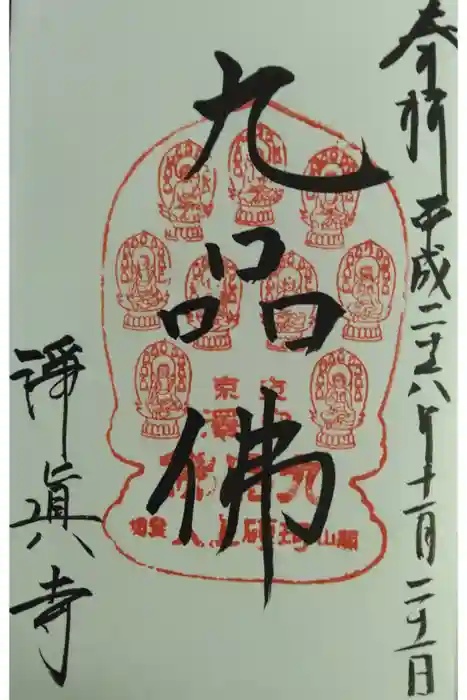 奉拝 平成二十八年十一月二十二日
九品佛
淨眞寺